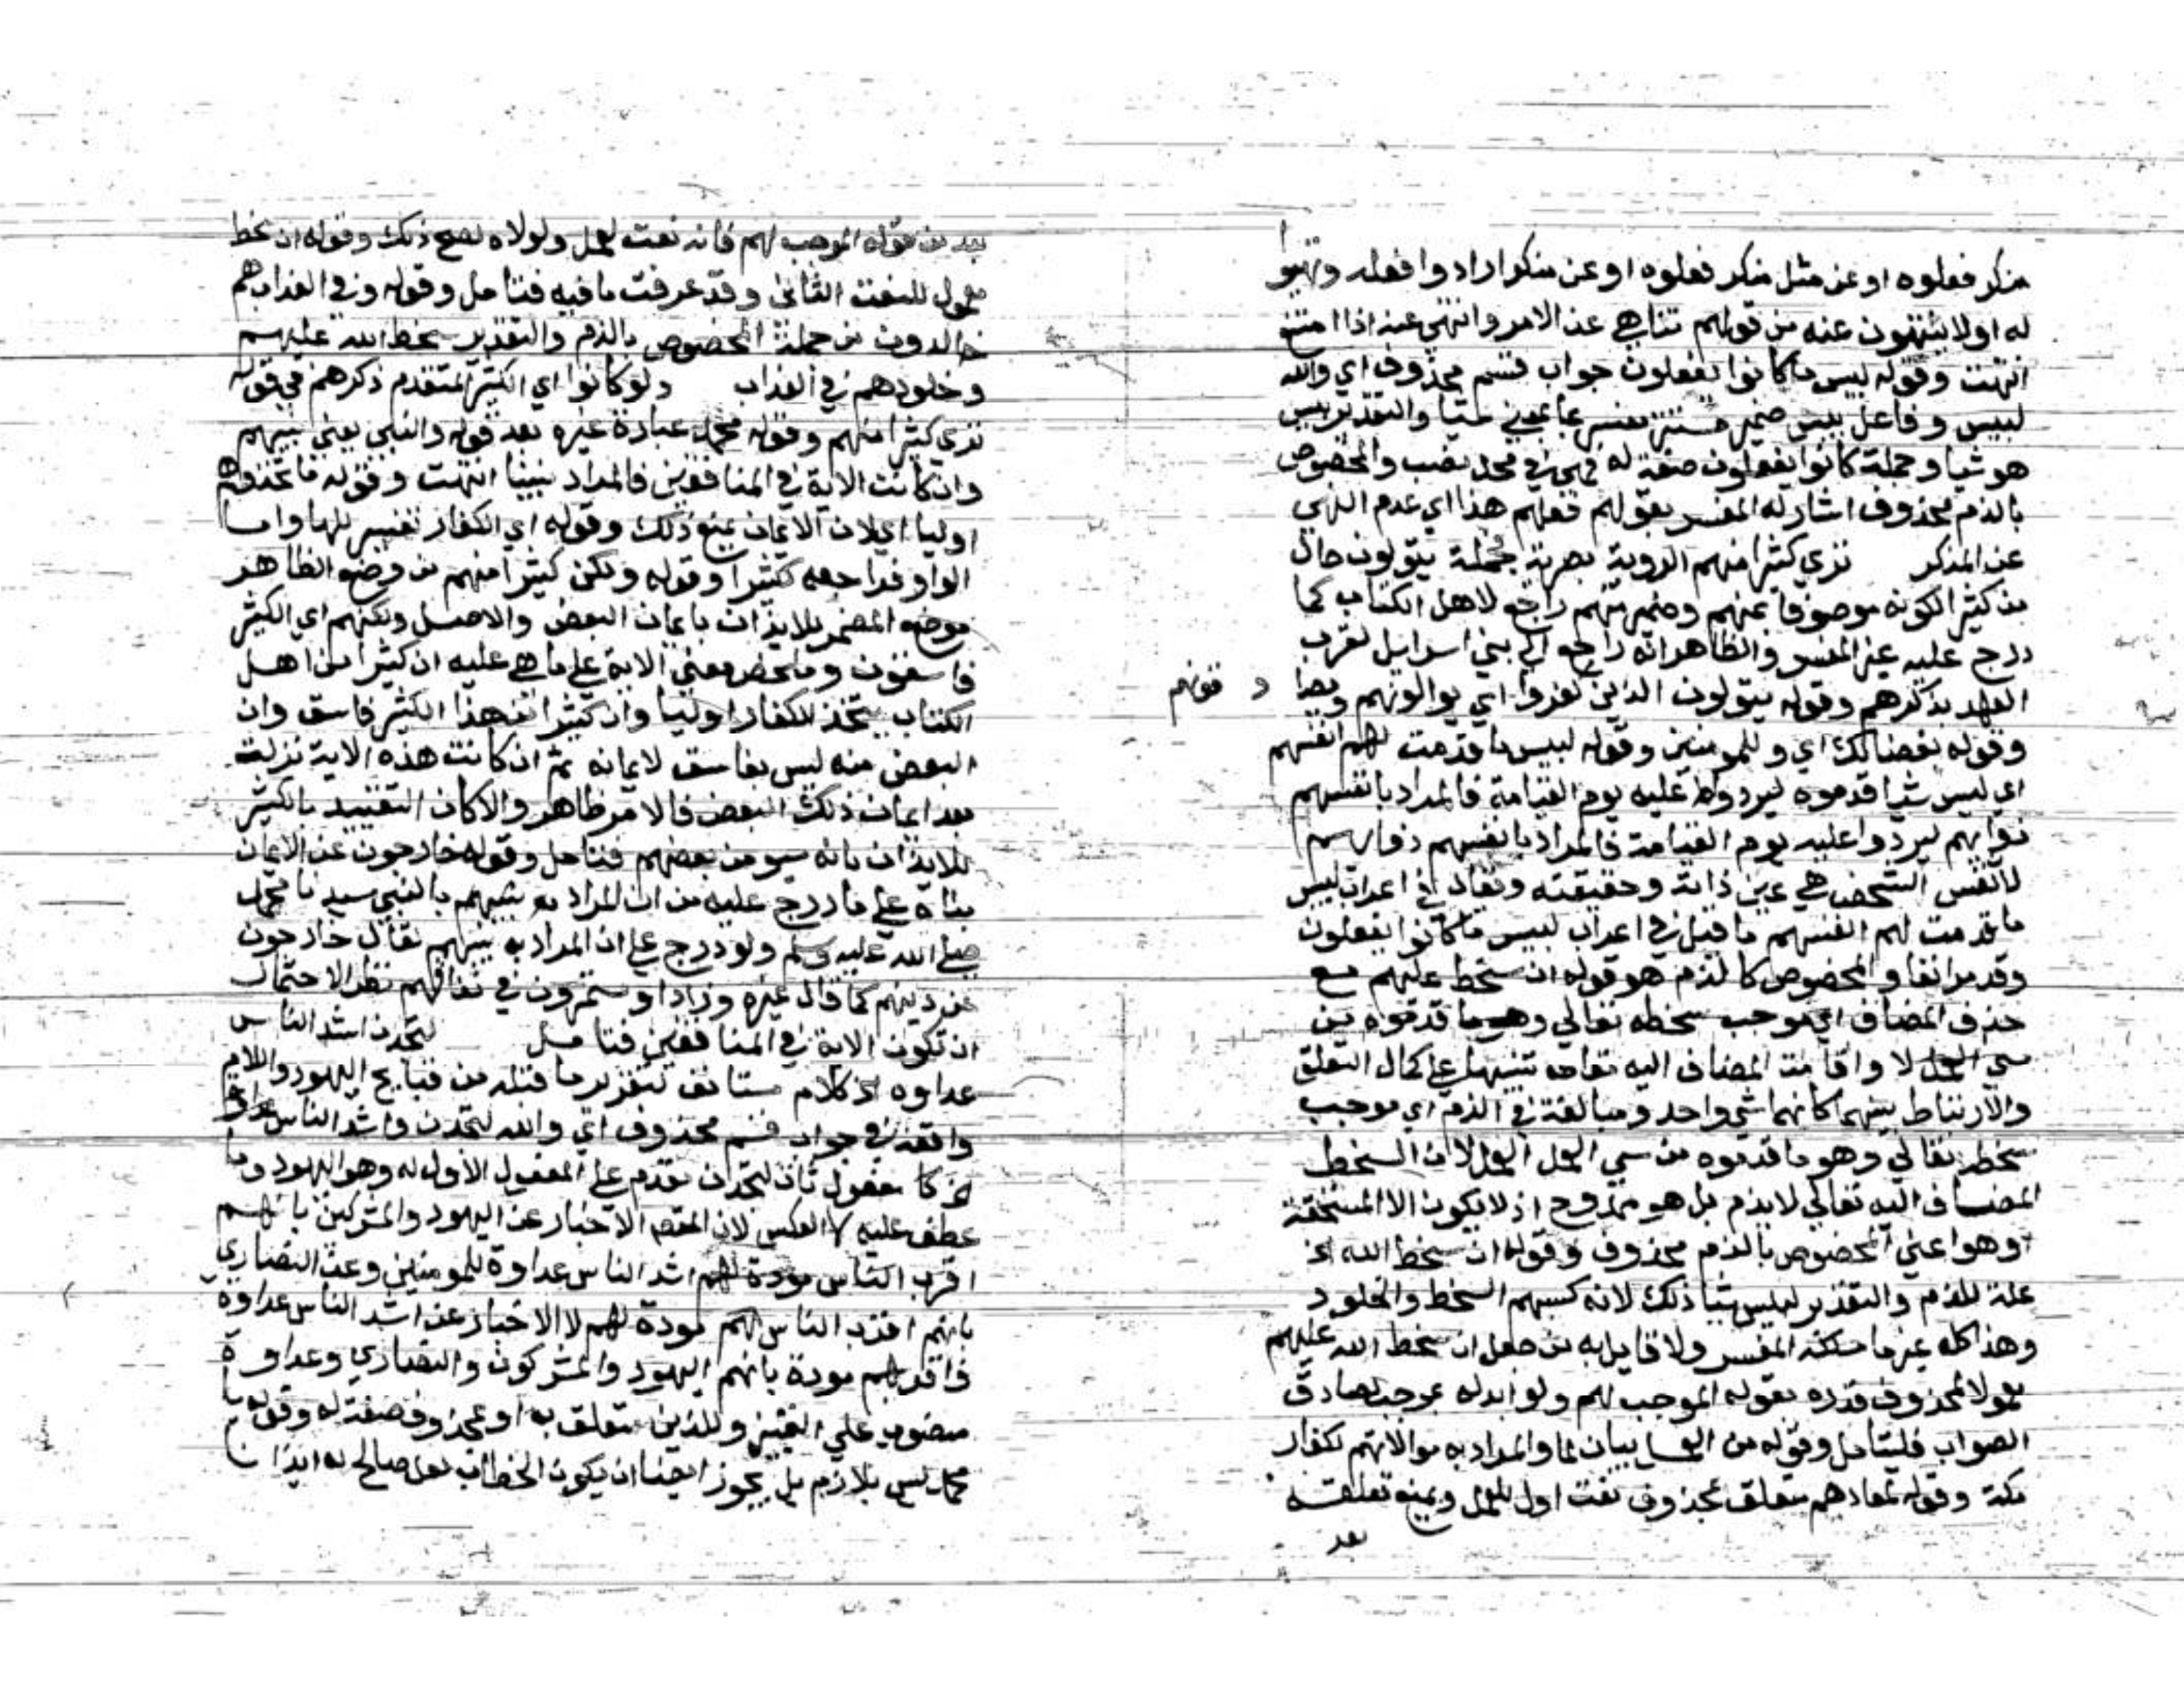 منكر فعلوه او عن مثل منكر فعلوه او عن منكر ارادوا فعله وتهيؤ
له او لا ينتهون عنه من قولهم تناهى عن الامر وانتهى عنه اذا امتنع
انتهت وقوله لبيس ما كانوا يفعلون جواب قسم محذوف اي والله
لبيس وفاعل بيس ضمير مستتر تفسره ما بمعنى شيا والتقدير بيس
هو شيا وجملة كانوا يفعلون صفة له فهي في محل نصب والمخصوص
بالذم محذوف اشار له المفسر بقولهم فعلهم هذا اي عدم النهي
عن المنكر ترى كثيرا منهم الروية بصرية فجملة يتولون حال
من كثيرا لكونه موصوفا بمنهم وضمير منهم راجع لاهل الكتاب كما
درج عليه غير المفسر والظاهر انه راجع الى بني اسرايل لقرب
العهد بذكرهم وقوله يتولون الذين كفروا اي يوالونهم
وقوله بغضا لك اي وللمومنين وقوله لبيس ما قدمت لهم انفسهم
اي لبيس شيا قدموه ليردوا عليه يوم القيامة فالمراد بانفسهم
ذواتهم ليردوا عليه يوم القيامة فالمراد بانفسهم ذواتهم
لا نفس الشخص هي عين ذاته وحقيقته ويقال في اعراب لبيس
ما قدمت لهم انفسهم ما قيل في اعراب لبيس ما كانوا يفعلون
وقد مر انفا والمخصوص بالذم هو قوله ان سخط عليهم مع
حذف المضاف اي موجب سخطه تعالى وهو ما قدموه من
سي العمل لا واقامة المضاف اليه مقامه تنبيها على كمال التعلق
والارتباط بينهما كانهما شي واحد ومبالغة في الذم اي موجب
سخطه تعالى وهو ما قدموه من سي العمل لان السخط
المضاف اليه تعالى لا يذم بل هو ممدوح اذ لا يكون الا لمستحقه
او هو اعني المخصوص بالذم محذوف وقوله ان سخط الله الخ
علة للذم والتقدير لبيس شيا ذلك لانه كسبهم السخط والخلود
وهذا كله غير ما سلكه المفسر ولا قايل به من جعل ان سخط الله عليهم
معمولا لمحذوف قدره بقوله الموجب لهم ولو ابدله بموجب لصادف
الصواب فليتامل وقوله من العمل بيان لما والمراد به موالاتهم لكفار
مكة وقوله لمعادهم متعلق بمحذوف نعت اول للعمل ويمنع تعلقه
بعد
قوله الموجب لهم فانه نعت للعمل ولولاه لصح ذلك وقوله ان سخط
معمول للنعت الثاني وقد عرفت ما فيه فتامل وقوله وفي العذاب هم
خالدون من جملة المخصوص بالذم والتقدير سخط الله عليهم
وخلودهم في العذاب ولو كانوا اي الكثير المتقدم ذكرهم في قوله
ترى كثيرا منهم وقوله محمد عبارة غيره بعد قوله والنبي يعني نبيهم
وان كانت الاية في المنافقين فالمراد نبينا انتهت وقوله ما اتخذوهم
اوليا اي لان الايمان يمنع ذلك وقوله اي الكفار تفسير للها واما
الواو فراجعه كثيرا وقوله ولكن كثيرا منهم من وضع الظاهر
موضع المضمر للايذان بايمان البعض والاصل ولكنهم اي الكثير
فاسقون وملخص معنى الاية على ما هي عليه ان كثيرا من اهل
الكتاب يتخذ الكفار اوليا وان كثيرا من هذا الكثير فاسق وان
البعض منه ليس بفاسق لايمانه ثم ان كانت هذه الاية نزلت
بعد ايمان ذلك البعض فالامر ظاهر والا كان التقييد بالكثير
للايذان بانه سيومن بعضهم فتامل وقوله خارجون عن الايمان
بناه على ما درج عليه من ان المراد بنبيهم بالنبي سيدنا محمد
صلى الله عليه وسلم ولو درج على ان المراد به نبيهم لقال خارجون
عن دينهم كما قال غيره وزاد او مستمرون في نفاقهم نظرا لاحتمال
ان تكون الاية في المنافقين فتامل لتجدن اشد الناس
عداوة الخ كلام مستانف لتقرير ما قبله من قبايح اليهود واللام
واقعة في جواب قسم محذوف اي والله لتجدن واشد الناس عداوة
الخ مفعول ثان لتجدن مقدم على المفعول الاول له وهو اليهود وما
عطف عليه لا العكس لان المقصود الاخبار عن اليهود والمشركين بانهم
اشد الناس عداوة للمومنين وعن النصارى
بانهم اقرب الناس لهم مودة لهم لا الاخبار عن اشد الناس عداوة
واقربهم مودة بانهم اليهود والمشركون والنصارى وعداوة
منصوب على التمييز وللذين متعلق به او بمحذوف صفة له وقوله يا
محمد ليس بلازم بل يجوز ايضا ان يكون الخطاب لمن صالح له ايذانا